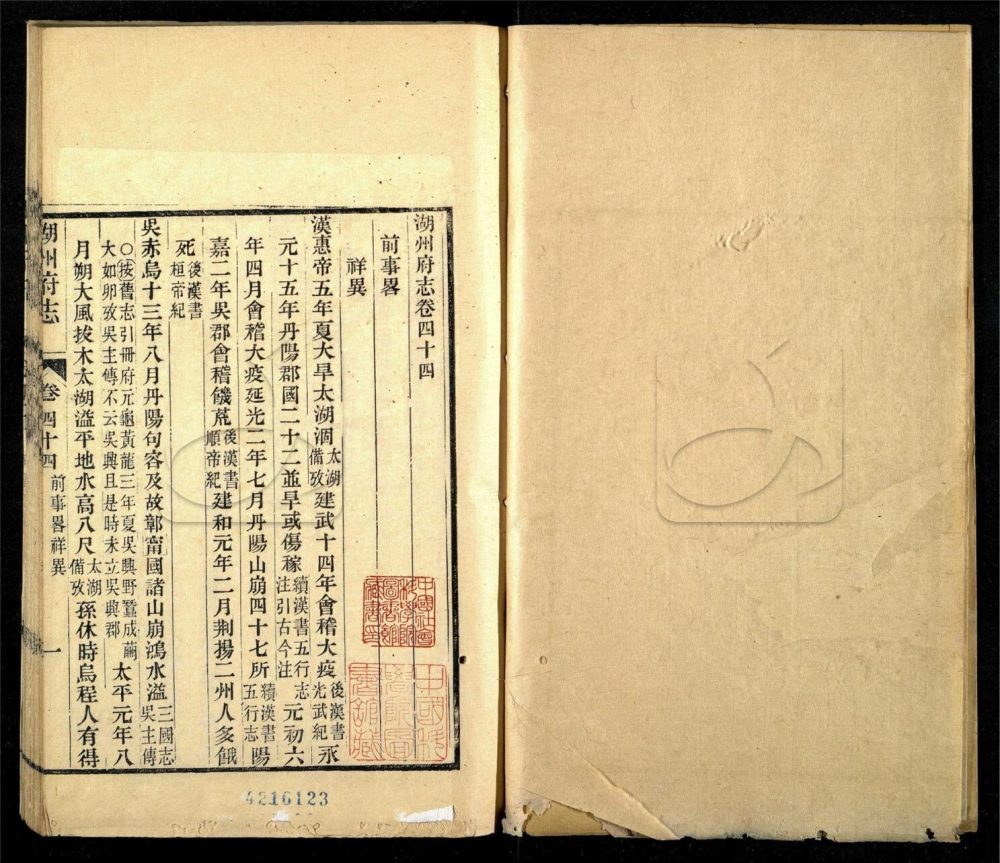 湖州府志卷四十四
前事畧
祥異
漢惠帝五年夏大旱太湖涸太湖備攷建武十四年會稽大疫後漢書光武紀永
元十五年丹陽郡國二十二並旱或傷稼續漢書五行志注引古今注元初六
年四月會稽大疫延光二年七月丹陽山崩四十七所續漢書五行志陽
嘉二年吳郡會稽饑荒後漢書順帝紀建和元年二月荆揚二州人多餓
死後漢書桓帝紀
吳赤烏十三年八月丹陽句容及故鄣甯國諸山崩鴻水溢三國志吳主傳
○按舊志引冊府元龜黃龍三年夏吳興野蠶成繭大如卵攷吳主傳不云吳興且是時未立吳興郡太平元年八
月朔大風拔木太湖溢平地水高八尺太湖備攷孫休時烏程人有得
湖州府志
卷四十四
前事畧祥異
一
中國社會科學院圖書館藏書印
4216123